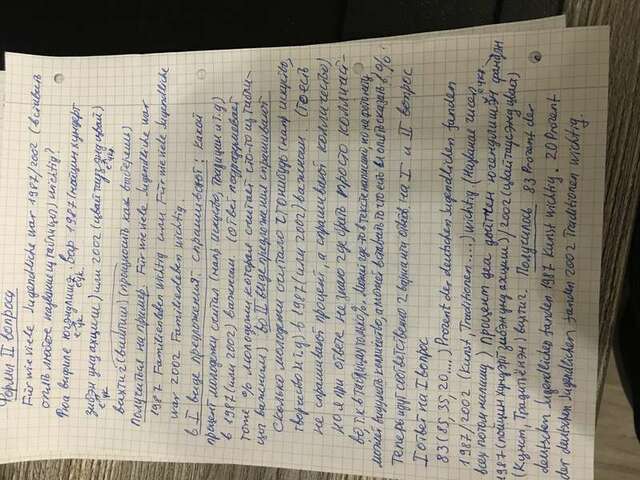 Формы II вопроса
Für wie viele Jugendliche war 1987/2002 (вставить
опять любое название из таблицы) wichtig?
Фюа вифиле югэндлишэ вар 1987 (нойцин хундерт
зибэн унд ахциш) или 2002 (цвай таузэнд цвай)
вихтиг (виштиш) (произносить как выберешь)
Получиться на пример. Für wie viele Jugendliche war
1987 Familienleben wichtig или Für wie viele Jugendliche
war 2002 Familienleben wichtig.
в I виде предложения: спрашивают: какой
процент молодежи считал (напр искуство, традиции и т.д)
в 1987 (или 2002) важным. (ответ подразумевает
тоже % молодежи которая считает что-то из табли-
цы важным) во II виде предложения спрашивают
сколько молодежи считало что нибудь (напр искуство,
творчество и т.д) в 1987 (или 2002) важным. (то есть
не спрашивают процент, а спрашивают колличество)
но я при ответе не знаю где брать просто колличест-
во, т.к в таблицах только %. Может где-то в тексте написано, но на фото нету
может видумать количество, а может вставать то что есть и опять сказать в %.
Теперь идут соответственно 2 варианта ответов на I и II вопрос
I ответ на I вопрос
83 (85, 35, 20....) Prozent der deutschen Jugendlichen fanden
1987/2002 (Kunst, Traditionen....) wichtig (Название чисел
всех потом напишу) процент деа дойтчен югендлишэн фандэн
1987 (нойцин хундэрт зибэн унд ахциш)/2002 (цвай таусэнд цвай)
(Кунст, Традитьёнэн) вихтиг. Получилось 83 Prozent der
deutschen Jugendlichen fanden 1987 Kunst wichtig. 20 Prozent
der deutschen Jugendlichen fanden 2002 Traditionen wichtig.